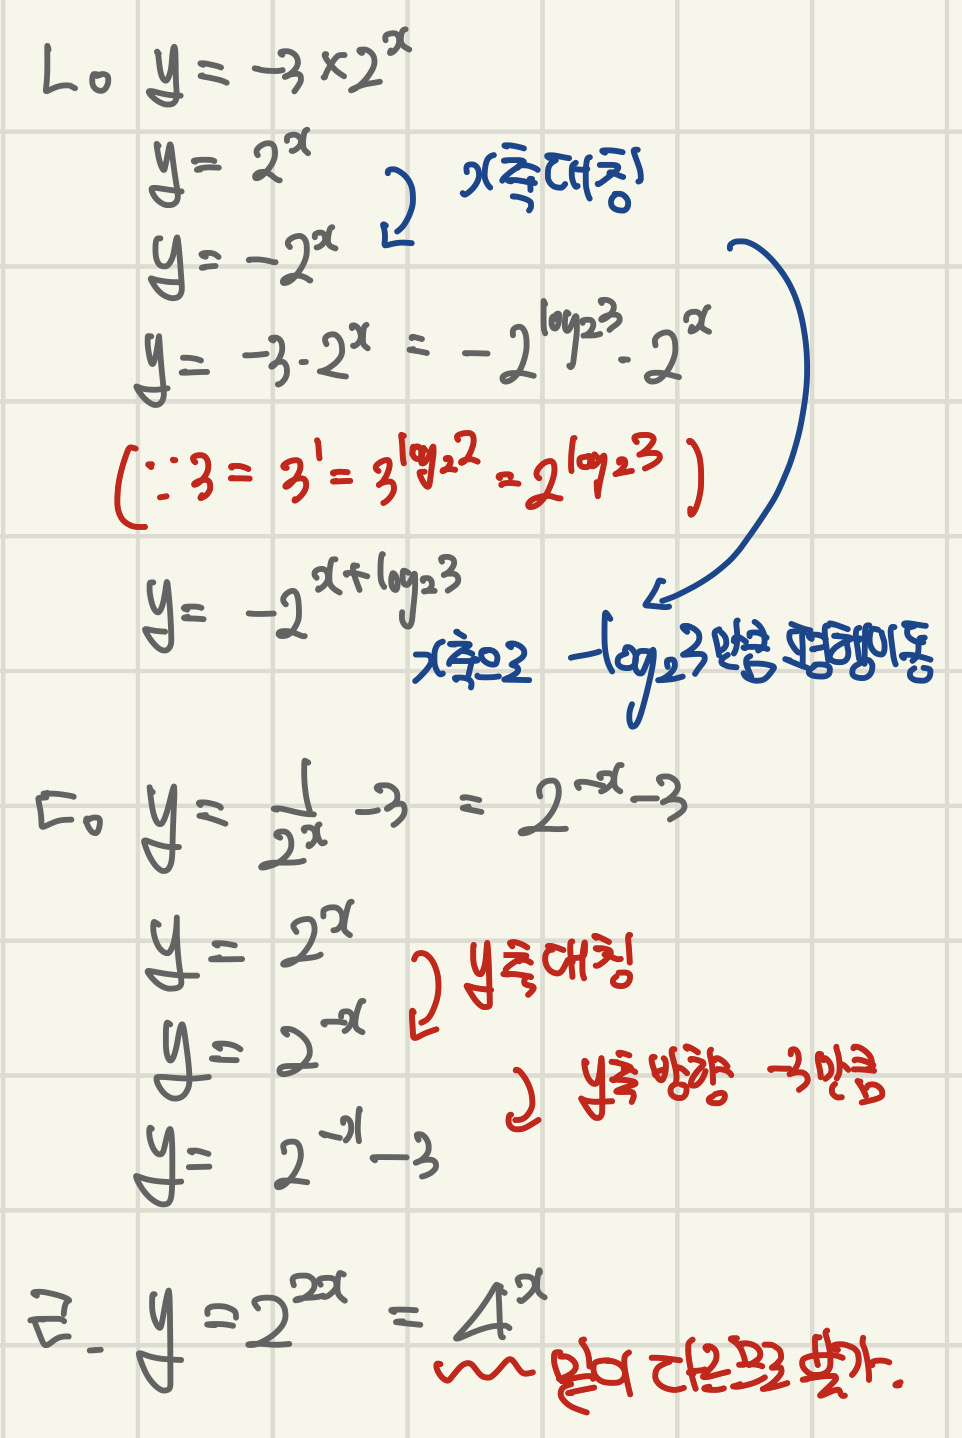 ㄴ. y = -3 × 2^x
y = 2^x
x축대칭
y = -2^x
y = -3 · 2^x = -2^{log_2 3} · 2^x
(∵ 3 = 3^1 = 3^{log_2 2} = 2^{log_2 3})
y = -2^{x+log_2 3}
x축으로 -log_2 3만큼 평행이동
ㄷ. y = 1/2^x -3 = 2^{-x} -3
y = 2^x
y축대칭
y = 2^{-x}
y축 방향 -3만큼
y = 2^{-x} -3
ㄹ. y = 2^{2x} = 4^x
밑이 다르므로 불가.